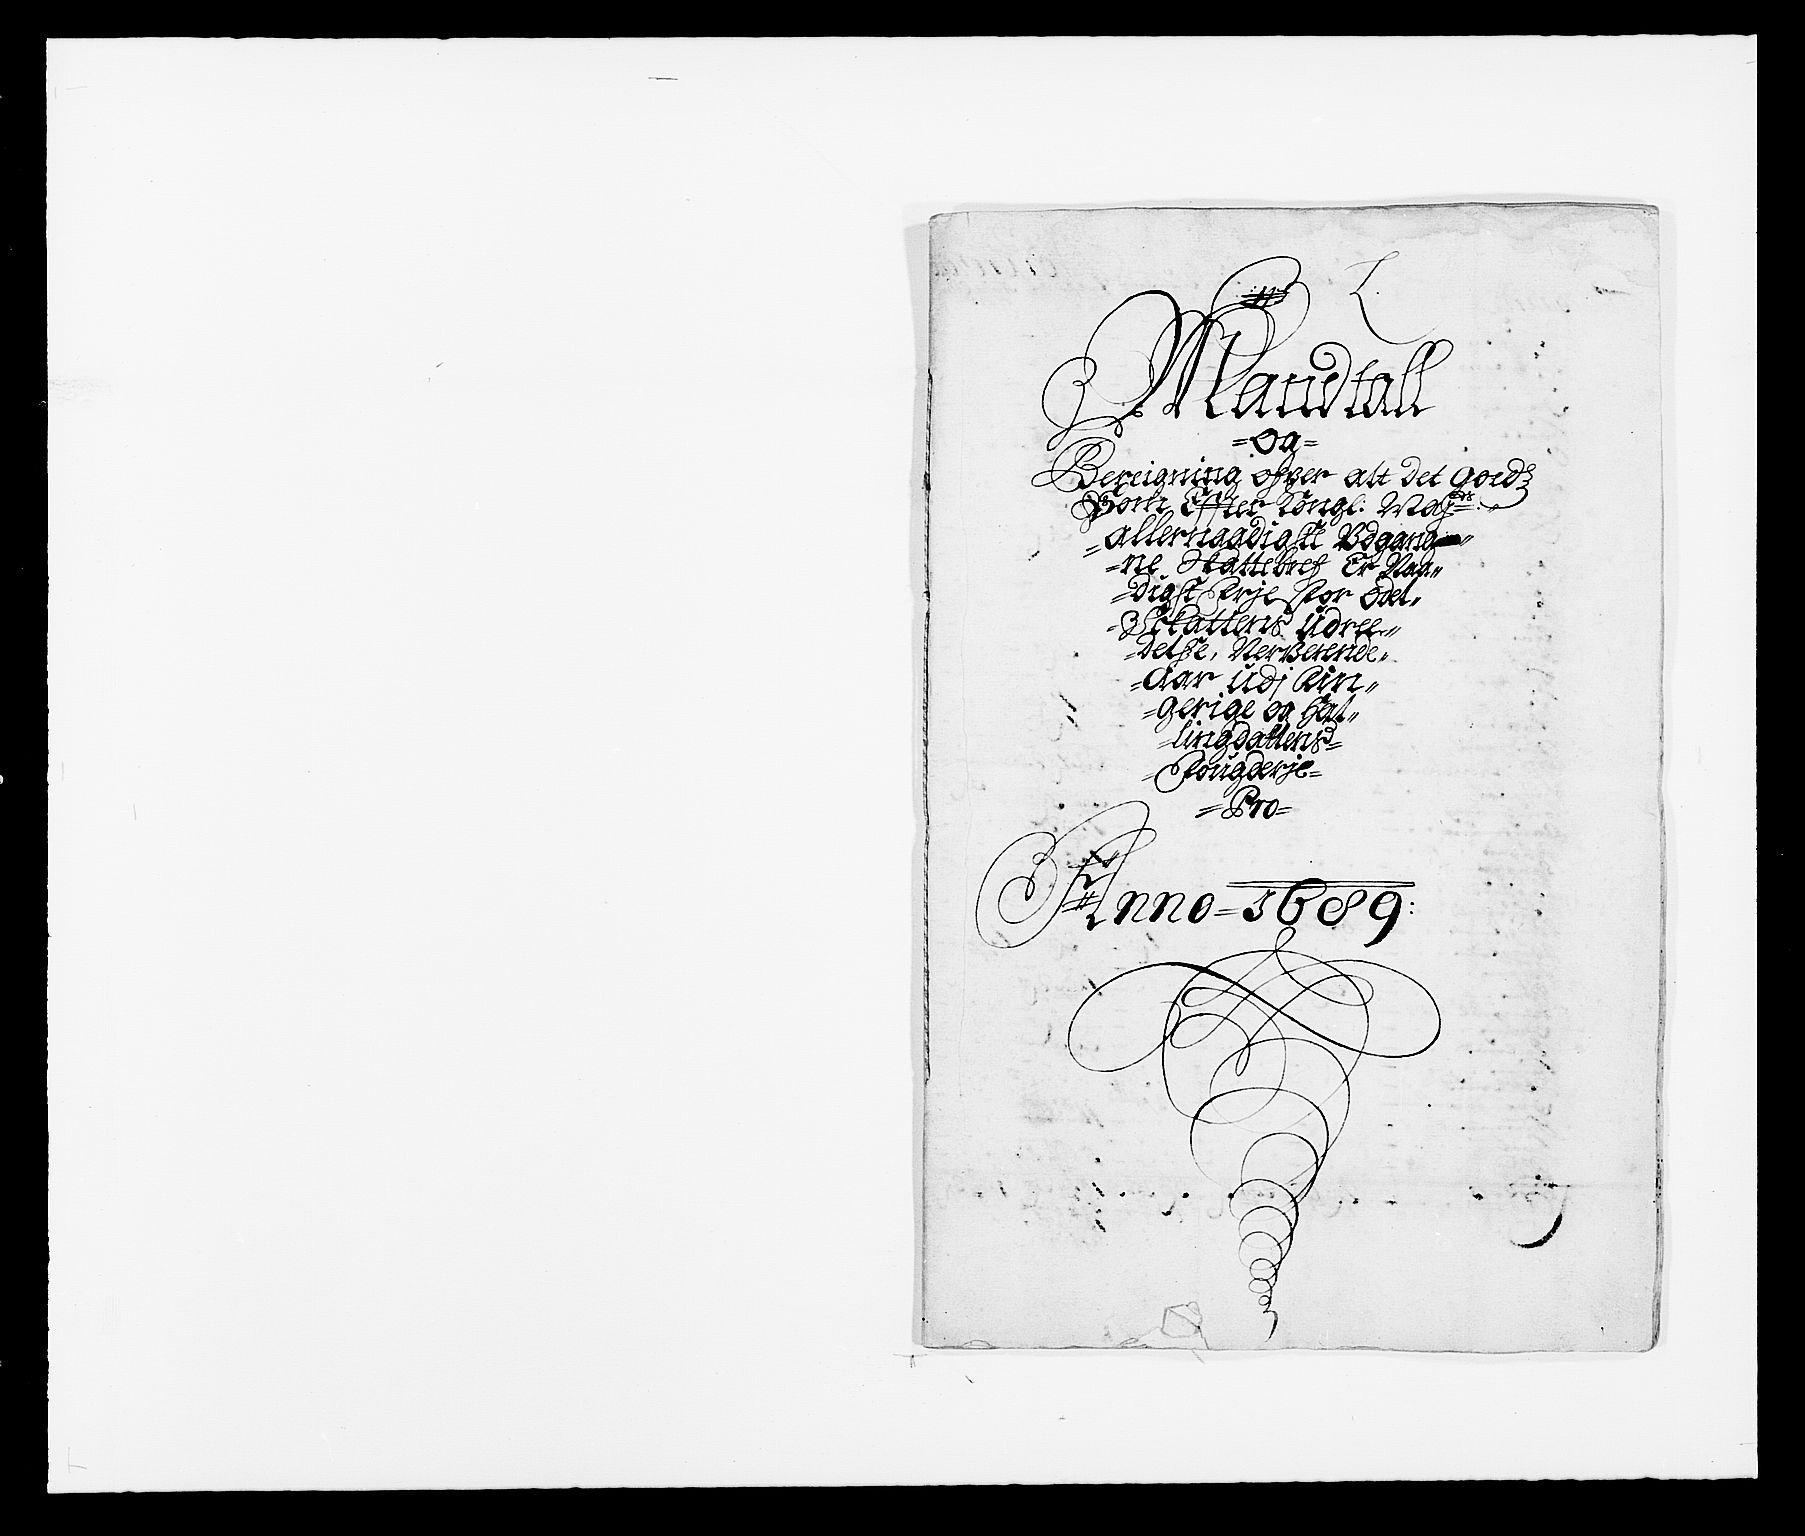 L.
Mandtall
=og=
Bereigning ofver alt det goedz
Som Effter Kongl: Maj:ts
=allernaadigste Udgang=
=ne Skattebref Er Naa=
=digst Frje For odel=
=Skattens Udree=
=delse, Nerverende=
=Aar Udj Rin=
=gerige og Hal=
=lingdallens=
=Fougderje=
=Pro=
Anno=1689: